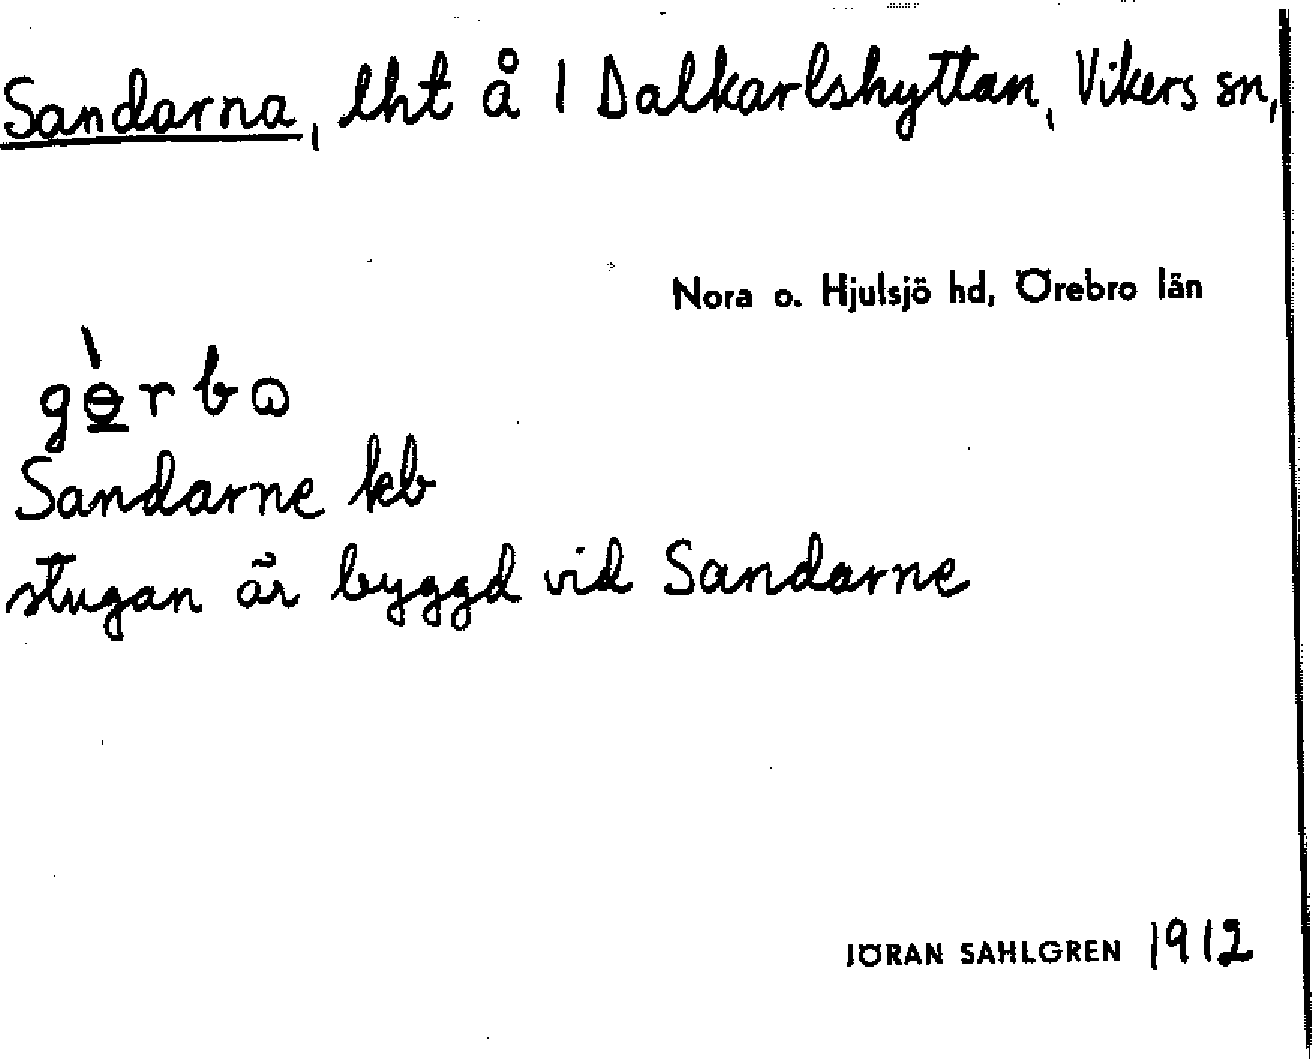 Sandarna, lht å 1 Dalkarlshyttan, Vikers sn,
Nora o. Hjulsjö hd, Örebro län
gɵ̲̀rbɷ
Sandarne kb
stugan är byggd vid Sandarne
JÖRAN SAHLGREN 1912